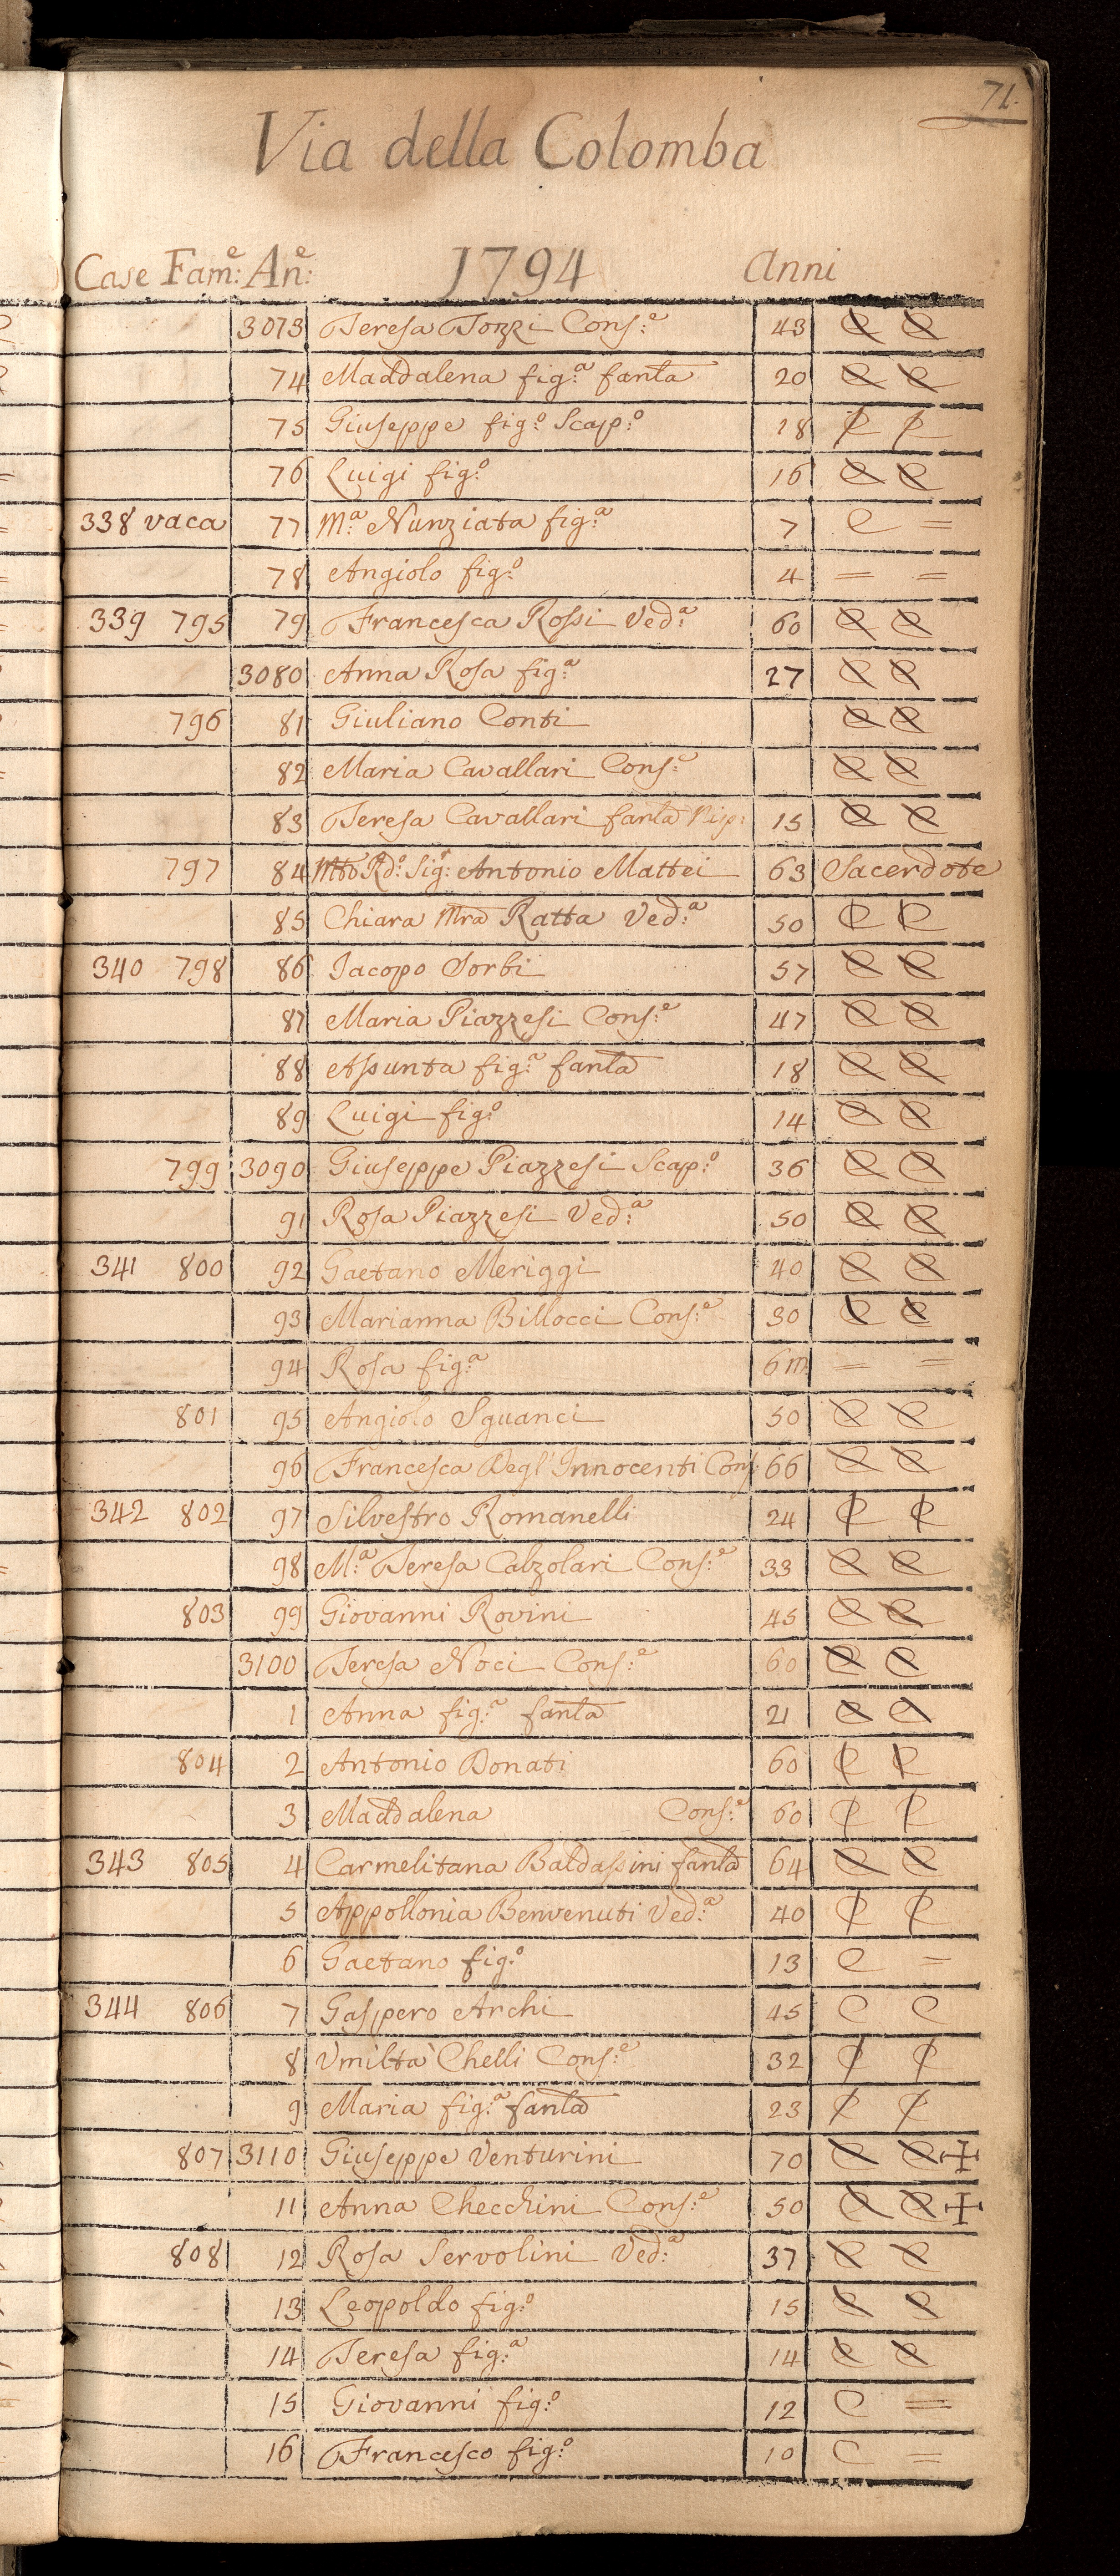 71.
Via della Colomba
Case Fam:e An:e 1794 Anni
3073 Teresa Tozzi Cons:e 43 C C
74 Maddalena fig:a fanla 20 C C
75 Giuseppe fig:o Scap:o 18 C C
76 Luigi fig:o 16 C C
338 vaca 77 M:a Nunziata fig:a 7 C =
78 Angiolo fig:o 4 = =
339 795 79 Francesca Rossi Ved:a 60 C C
3080 Anna Rosa fig:a 27 C C
796 81 Giuliano Conti C C
82 Maria Cavallari Cons:e C C
83 Teresa Cavallari fanla Nip: 15 C C
797 84 Mto Rdo: Sig:r Antonio Mattei 63 Sacerdote
85 Chiara Mra Ratta Ved:a 50 C C
340 798 86 Iacopo Sorbi 57 C C
87 Maria Piazzesi Cons:e 47 C C
88 Assunta fig:a fanla 18 C C
89 Luigi fig:o 14 C C
799 3090 Giuseppe Piazzesi Scap:o 36 C C
91 Rosa Piazzesi Ved:a 50 C C
341 800 92 Gaetano Meriggi 40 C C
93 Marianna Billocci Cons:e 30 C C
94 Rosa fig:a 6m = =
801 95 Angiolo Sguanci 50 C C
96 Francesca Degl'Innocenti Cons: 66 C C
342 802 97 Silvestro Romanelli 24 C C
98 M:a Teresa Calzolari Cons:e 33 C C
803 99 Giovanni Rovini 45 C C
3100 Teresa Noci Cons:e 60 C C
1 Anna fig:a fanla 21 C C
804 2 Antonio Donati 60 C C
3 Maddalena Cons:e 60 C C
343 805 4 Carmelitana Baldassini fanla 64 C C
5 Appollonia Benvenuti Ved:a 40 C C
6 Gaetano fig:o 13 C =
344 806 7 Gaspero Archi 45 C C
8 Vmiltà Chelli Cons:e 32 C C
9 Maria fig:a fanla 23 C C
807 3110 Giuseppe Venturini 70 C C +
11 Anna Checchini Cons:e 50 C C +
808 12 Rosa Servolini Ved:a 37 C C
13 Leopoldo fig:o 15 C C
14 Teresa fig:a 14 C C
15 Giovanni fig:o 12 C =
16 Francesco fig:o 10 C =